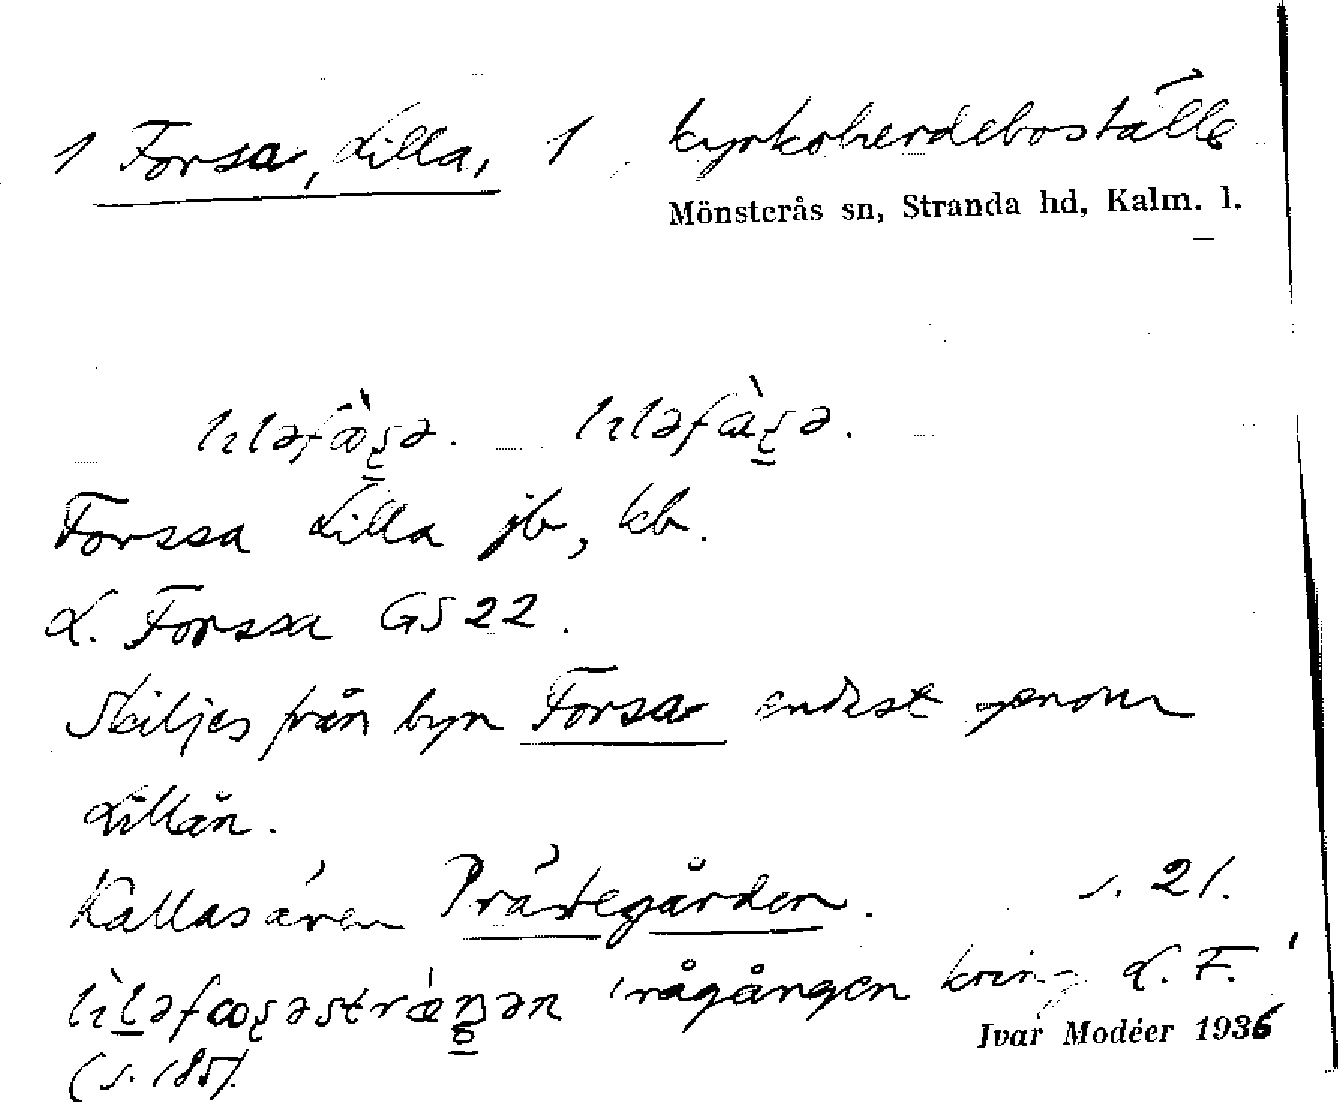 1 Forsa, Lilla, 1 kyrkoherdeboställe
Mönsterås sn, Stranda hd, Kalm. l.
Forssa Lilla jb, kb.
L. Forssa GS 22.
Skiljes från byn Forsa endast genom
Lillån.
Kallas även Prästegården. s. 21.
'rågången kring L. F.'
Ivar Modéer 1936
(s. 185)